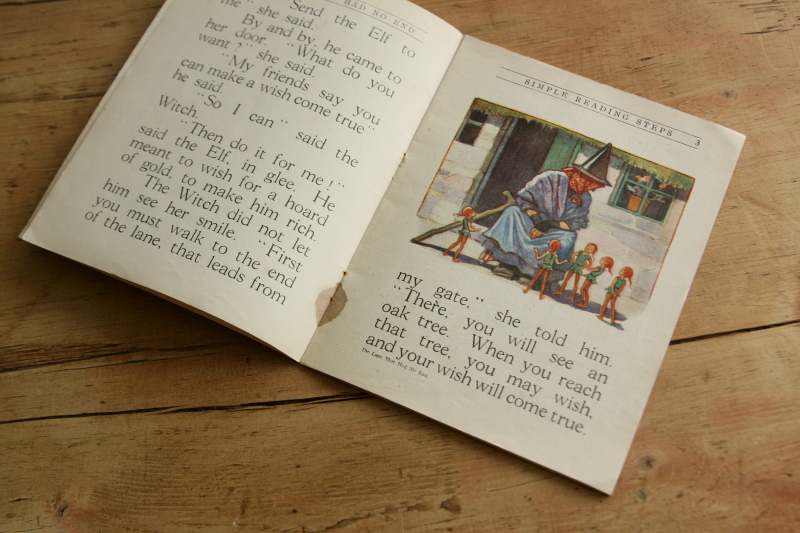 HAD NO END
Send the Elf to
me" she said.
By and by, he came to
her door. "What do you
want?" she said.
"My friends say you
can make a wish come true"
he said.
"So I can" said the
Witch.
"Then do it for me!"
said the Elf, in glee. He
meant to wish for a hoard
of gold, to make him rich.
The Witch did not let
him see her smile. "First
you must walk to the end
of the lane, that leads from
SIMPLE READING STEPS 3
my gate," she told him.
"There, you will see an
oak tree. When you reach
that tree, you may wish,
and your wish will come true.
The Lane That Had No End.